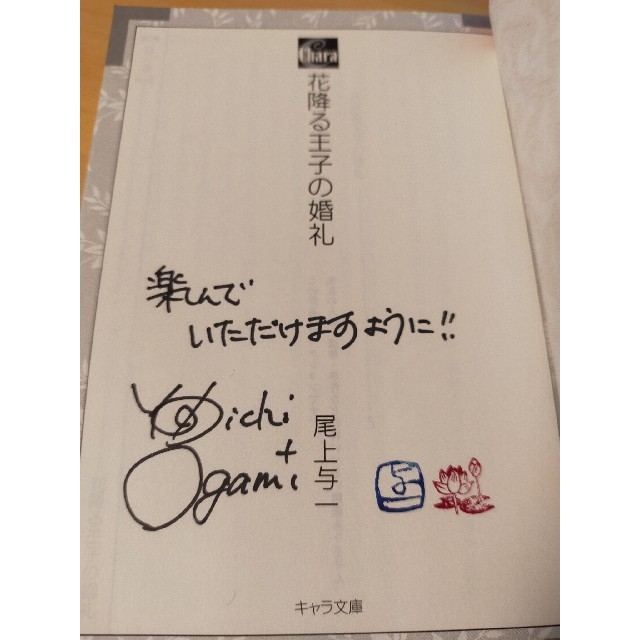 Chara
花降る王子の婚礼
楽しんで
いただけますように!!
Yoichi
Ogami
尾上与一
与一
キャラ文庫